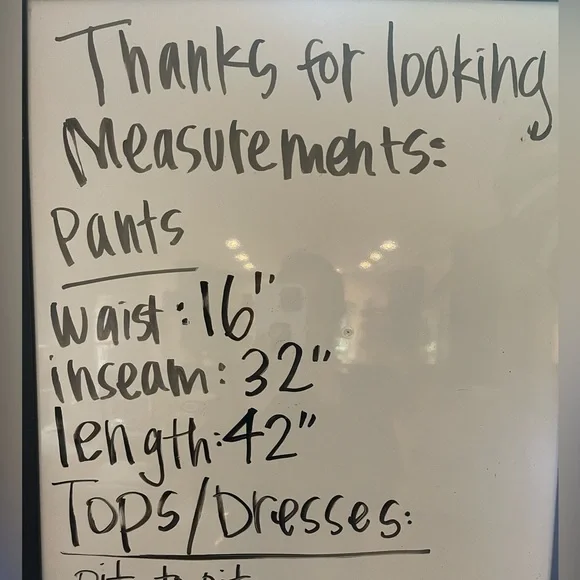 Thanks for looking
Measurements:
Pants
waist: 16"
inseam: 32"
length: 42"
Tops/Dresses:
pit to pit